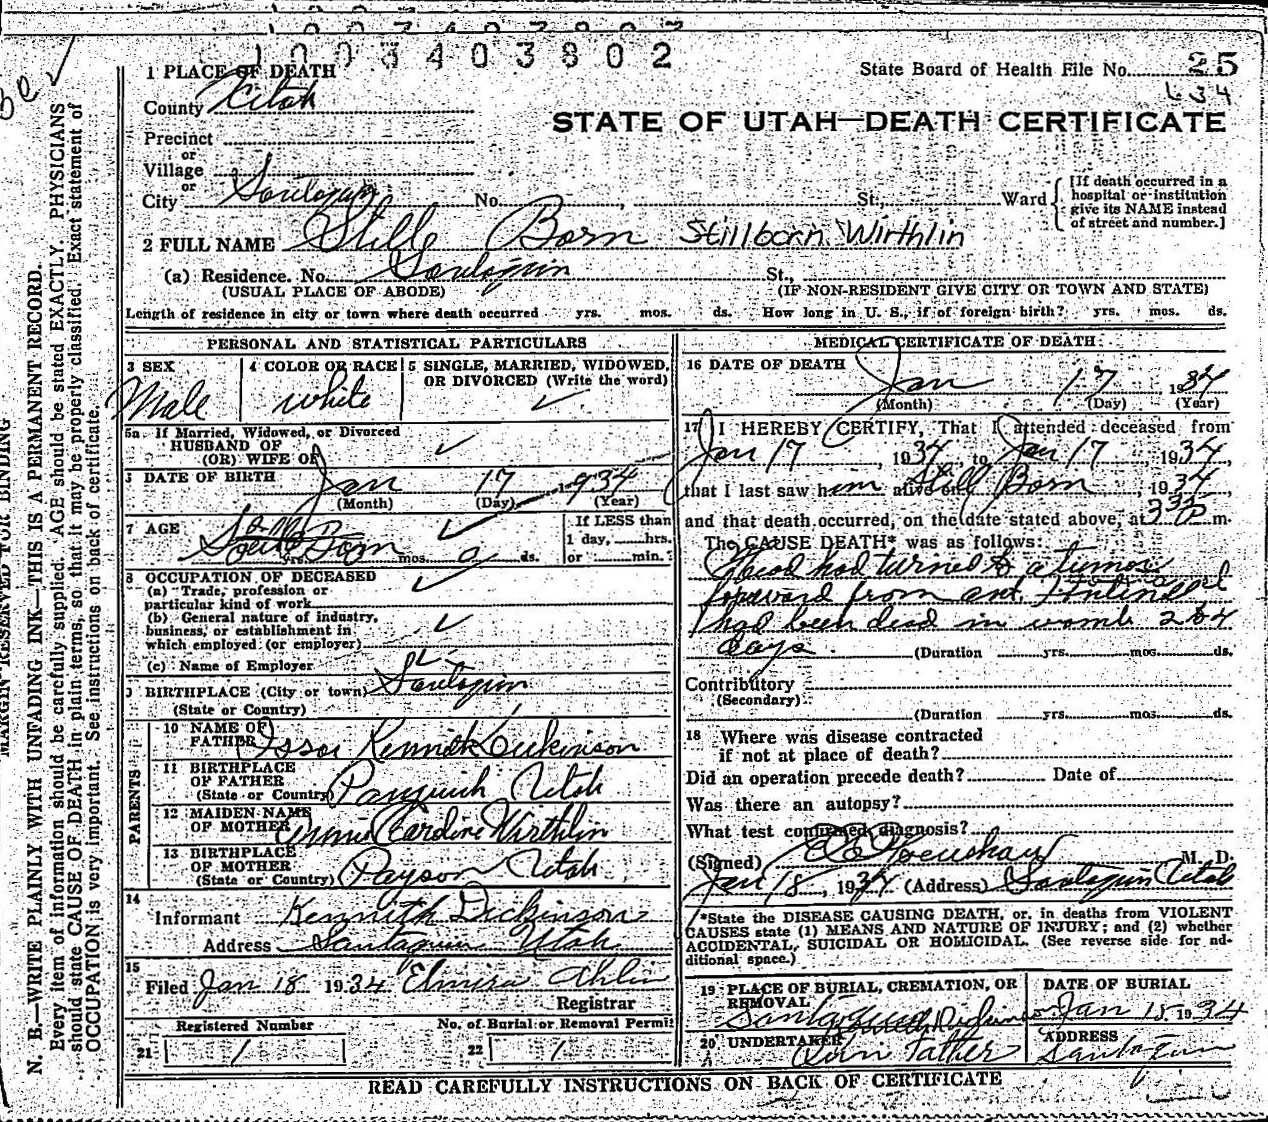 1003403802
1 PLACE OF DEATH
State Board of Health File No. 25
County Utah
634
STATE OF UTAH—DEATH CERTIFICATE
Precinct
or
Village
or
City Santaquin No. , St., Ward
[If death occurred in a
hospital or institution
give its NAME instead
of street and number.]
2 FULL NAME Still Born Stillborn Wirthlin
(a) Residence. No. Santaquin St.,
(USUAL PLACE OF ABODE) (IF NON-RESIDENT GIVE CITY OR TOWN AND STATE)
Length of residence in city or town where death occurred yrs. mos. ds. How long in U. S., if of foreign birth? yrs. mos. ds.
PERSONAL AND STATISTICAL PARTICULARS
3 SEX Male
4 COLOR OR RACE white
5 SINGLE, MARRIED, WIDOWED,
OR DIVORCED (Write the word)
5a If Married, Widowed, or Divorced
HUSBAND OF
(OR) WIFE OF
DATE OF BIRTH Jan 17 1934
(Month) (Day) (Year)
7 AGE Still Born
yrs. mos. ds.
If LESS than
1 day, hrs.
or min.?
8 OCCUPATION OF DECEASED
(a) Trade, profession or
particular kind of work
(b) General nature of industry,
business, or establishment in
which employed (or employer)
(c) Name of Employer
9 BIRTHPLACE (City or town) Santaquin
(State or Country)
PARENTS
10 NAME OF
FATHER Kenneth Dickinson
11 BIRTHPLACE
OF FATHER
(State or Country) Panguich Utah
12 MAIDEN NAME
OF MOTHER Caroline Wirthlin
13 BIRTHPLACE
OF MOTHER
(State or Country) Payson Utah
14
Informant Kenneth Dickinson
Address Santaquin Utah
15
Filed Jan 18 1934 Elmira Ahlin
Registrar
Registered Number No. of Burial or Removal Permit
21 1 22 1
MEDICAL CERTIFICATE OF DEATH
16 DATE OF DEATH Jan 17 1934
(Month) (Day) (Year)
17 I HEREBY CERTIFY, That I attended deceased from
Jan 17, 1934, to Jan 17, 1934
that I last saw him alive on Still Born, 1934
and that death occurred, on the date stated above, at m.
The CAUSE DEATH* was as follows:
Head had turned to a tumor
forward from
had been dead in womb
days. (Duration yrs. mos. ds.
Contributory
(Secondary)
(Duration yrs. mos. ds.
18 Where was disease contracted
if not at place of death?
Did an operation precede death? Date of
Was there an autopsy?
What test confirmed diagnosis?
(Signed) M. D.
Jan 18, 1934 (Address) Santaquin Utah
*State the DISEASE CAUSING DEATH, or, in deaths from VIOLENT
CAUSES state (1) MEANS AND NATURE OF INJURY; and (2) whether
ACCIDENTAL, SUICIDAL OR HOMICIDAL. (See reverse side for ad-
ditional space.)
19 PLACE OF BURIAL, CREMATION, OR
REMOVAL Santaquin
DATE OF BURIAL
Jan 1934
20 UNDERTAKER Father
ADDRESS
Santaquin
READ CAREFULLY INSTRUCTIONS ON BACK OF CERTIFICATE
MARGIN RESERVED FOR BINDING
N. B.—WRITE PLAINLY WITH UNFADING INK—THIS IS A PERMANENT RECORD.
Every item of information should be carefully supplied. AGE should be stated EXACTLY. PHYSICIANS
should state CAUSE OF DEATH in plain terms, so that it may be properly classified. Exact statement of
OCCUPATION is very important. See instructions on back of certificate.